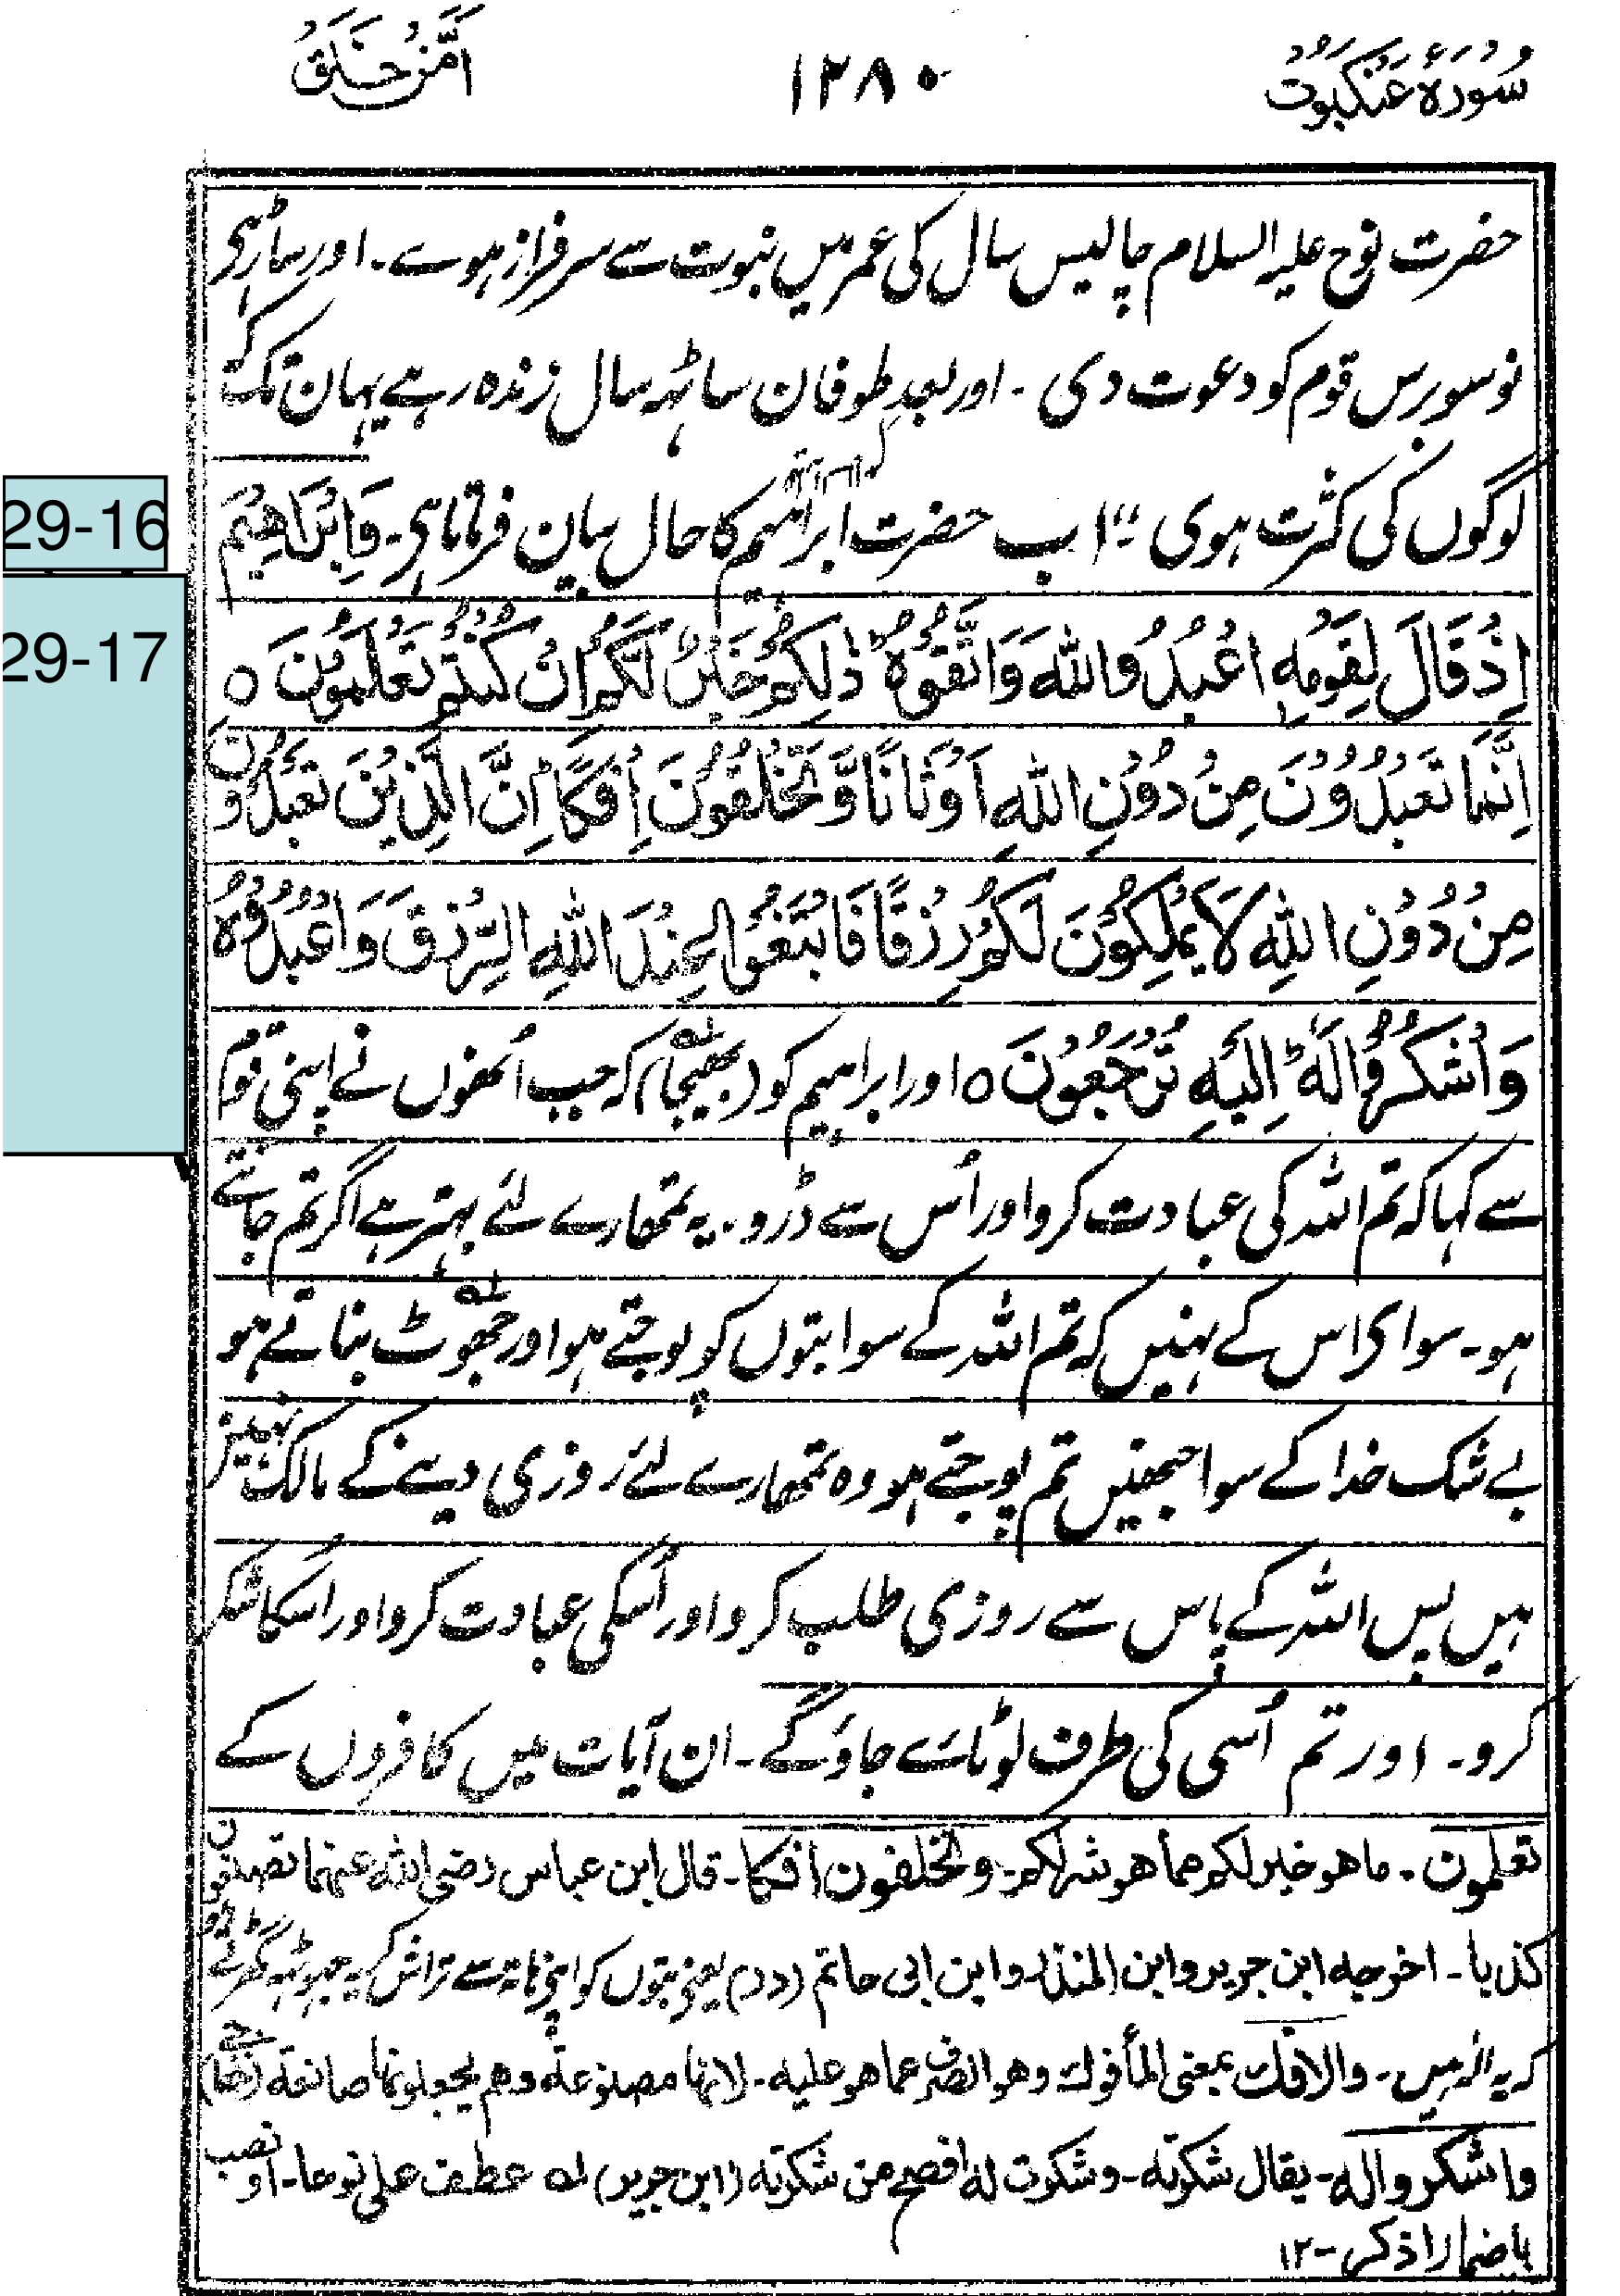 سُوْرَۂ عَنْکَبُوْت ١٢٨٠ اَمَّنْ خَلَقَ
حضرت نوح علیہ السلام چالیس سال کی عمر میں نبوت سے سرفراز ہوے۔ اور ساڑہی
نو سو برس قوم کو دعوت دی ۔ اور بعد طوفان ساٹہہ سال زندہ رہے یہان تک کہ
لوگوں کی کثرت ہوی ؞ اب حضرت ابراہیم کا حال بیان فرماتا ہی۔ وَاِبْرَاهِيْمَ
29-16
اِذْ قَالَ لِقَوْمِهِ اعْبُدُوا اللّٰهَ وَاتَّقُوْهُ ؕ ذٰلِكُمْ خَيْرٌ لَّكُمْ اِنْ كُنْتُمْ تَعْلَمُوْنَ ○
29-17
اِنَّمَا تَعْبُدُوْنَ مِنْ دُوْنِ اللّٰهِ اَوْثَانًا وَّتَخْلُقُوْنَ اِفْكًا ؕ اِنَّ الَّذِيْنَ تَعْبُدُوْنَ
مِنْ دُوْنِ اللّٰهِ لَا يَمْلِكُوْنَ لَكُمْ رِزْقًا فَابْتَغُوْا عِنْدَ اللّٰهِ الرِّزْقَ وَاعْبُدُوْهُ
وَاشْكُرُوْا لَهٗ ؕ اِلَيْهِ تُرْجَعُوْنَ ○ اور ابراہیم کو (بھیجا) کہ جب اُنھوں نے اپنی قوم
سے کہا کہ تم اللہ کی عبادت کرو اور اُس سے ڈرو۔ یہ تمھارے لئے بہتر ہے اگر تم جانتے
ہو۔ سوای اس کے نہیں کہ تم اللہ کے سوا بتوں کو پوجتے ہو اور جھوٹ بناتے ہو
بے شک خدا کے سوا جنھیں تم پوجتے ہو وہ تمھارے لئے روزی دینے کے مالک نہیں
ہیں پس اللہ کے پاس سے روزی طلب کرو اور اُسکی عبادت کرو اور اُسکا شکر
کرو۔ اور تم اُسی کی طرف لوٹائے جاوٴگے۔ ان آیات میں کافروں کے
تعلمون ۔ ما هو خير لكم مما هو شر لكم۔ وتخلقون افكا۔ قال ابن عباس رضى الله عنهما تصنعون
كذبا۔ اخرجه ابن جرير وابن المنذر وابن ابى حاتم (در) یعنی بتوں کو اپنی ہاتہ سے تراش کر یہ جہوٹہہ گھڑتے ہو
کہ یہ الہ ہیں۔ والافك بمعنى المأفوك وهو الصرف عما هو عليه۔ لانها مصنوعة وهم يجعلونها صانعة
واشكروا له۔ يقال شكرته۔ وشكرت له افصح من شكرته (ابن جرير) له عطف على نوحا۔ او نصب
باضمار اذكر۔ ١٢